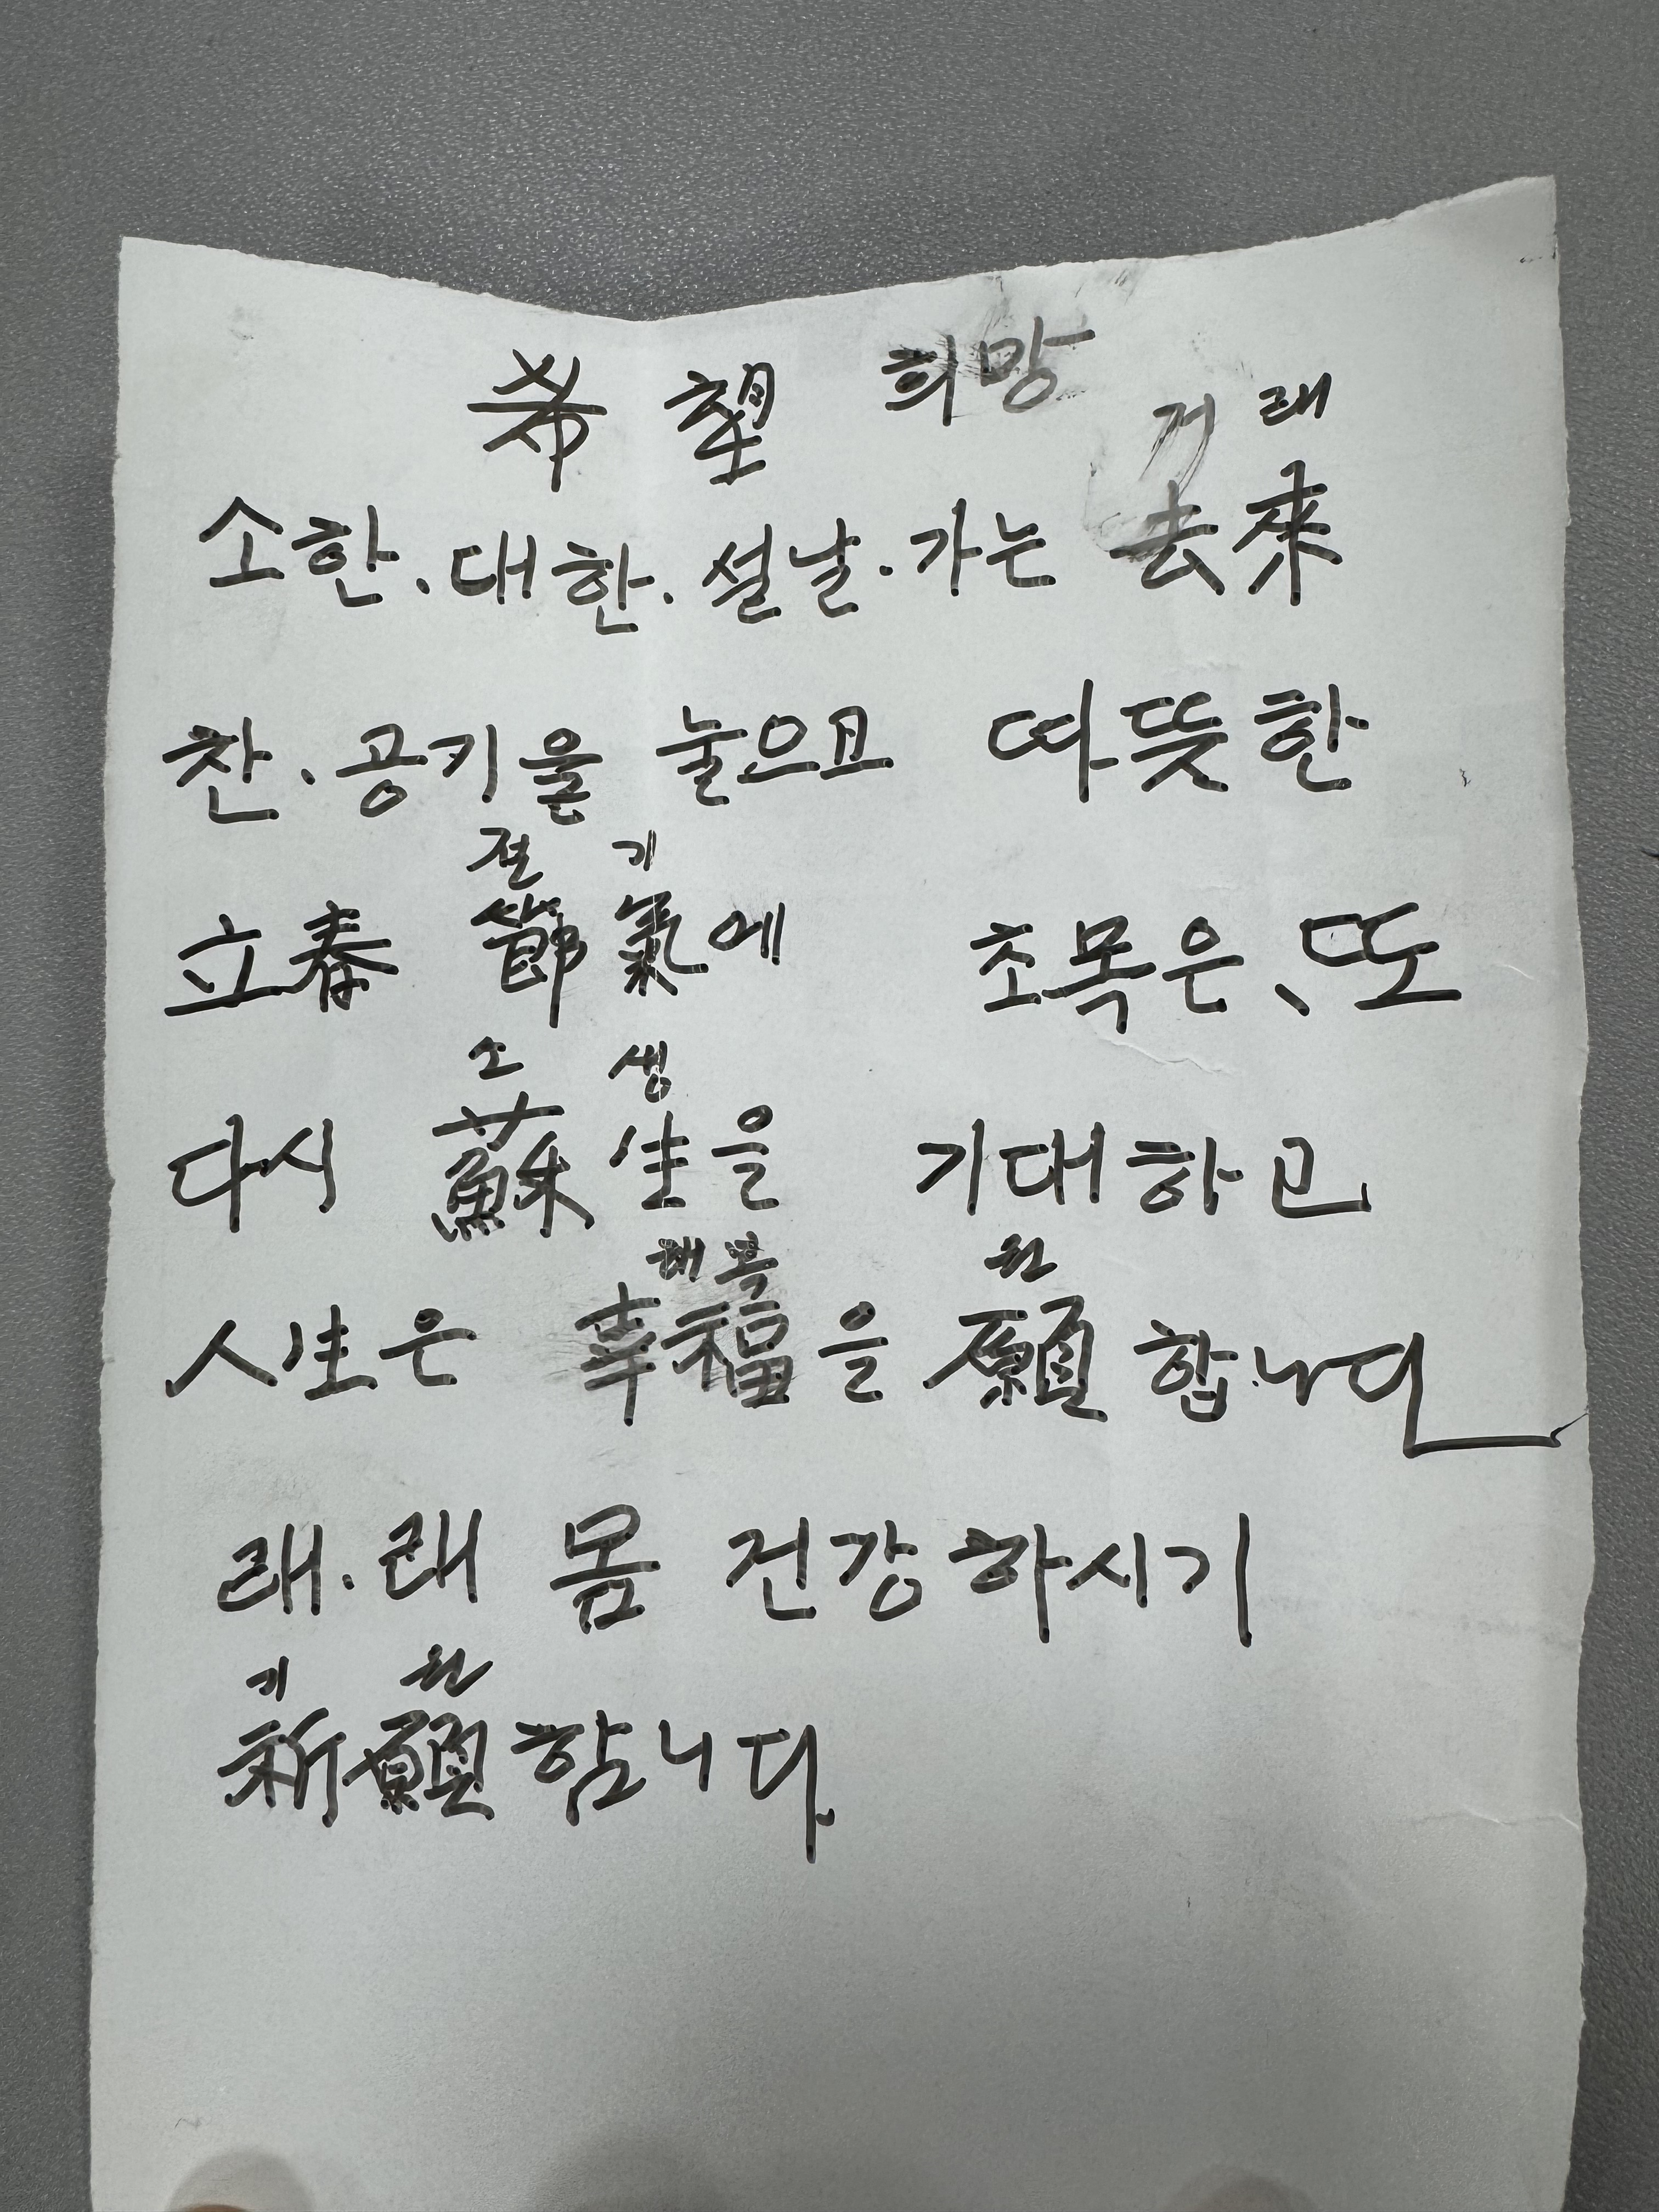 希望 희망
거래
소한.대한.설날.가는 去來
찬.공기을 눌으고 따뜻한
절 기
立春 節氣에 초목은、또
소 생
다시 蘇生을 기대하고
해복 원
人生은 幸福을 願합니다
래.래 몸 건강하시기
기 원
祈願합니다.